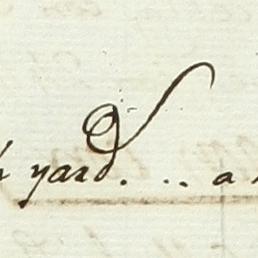 yard. .. a